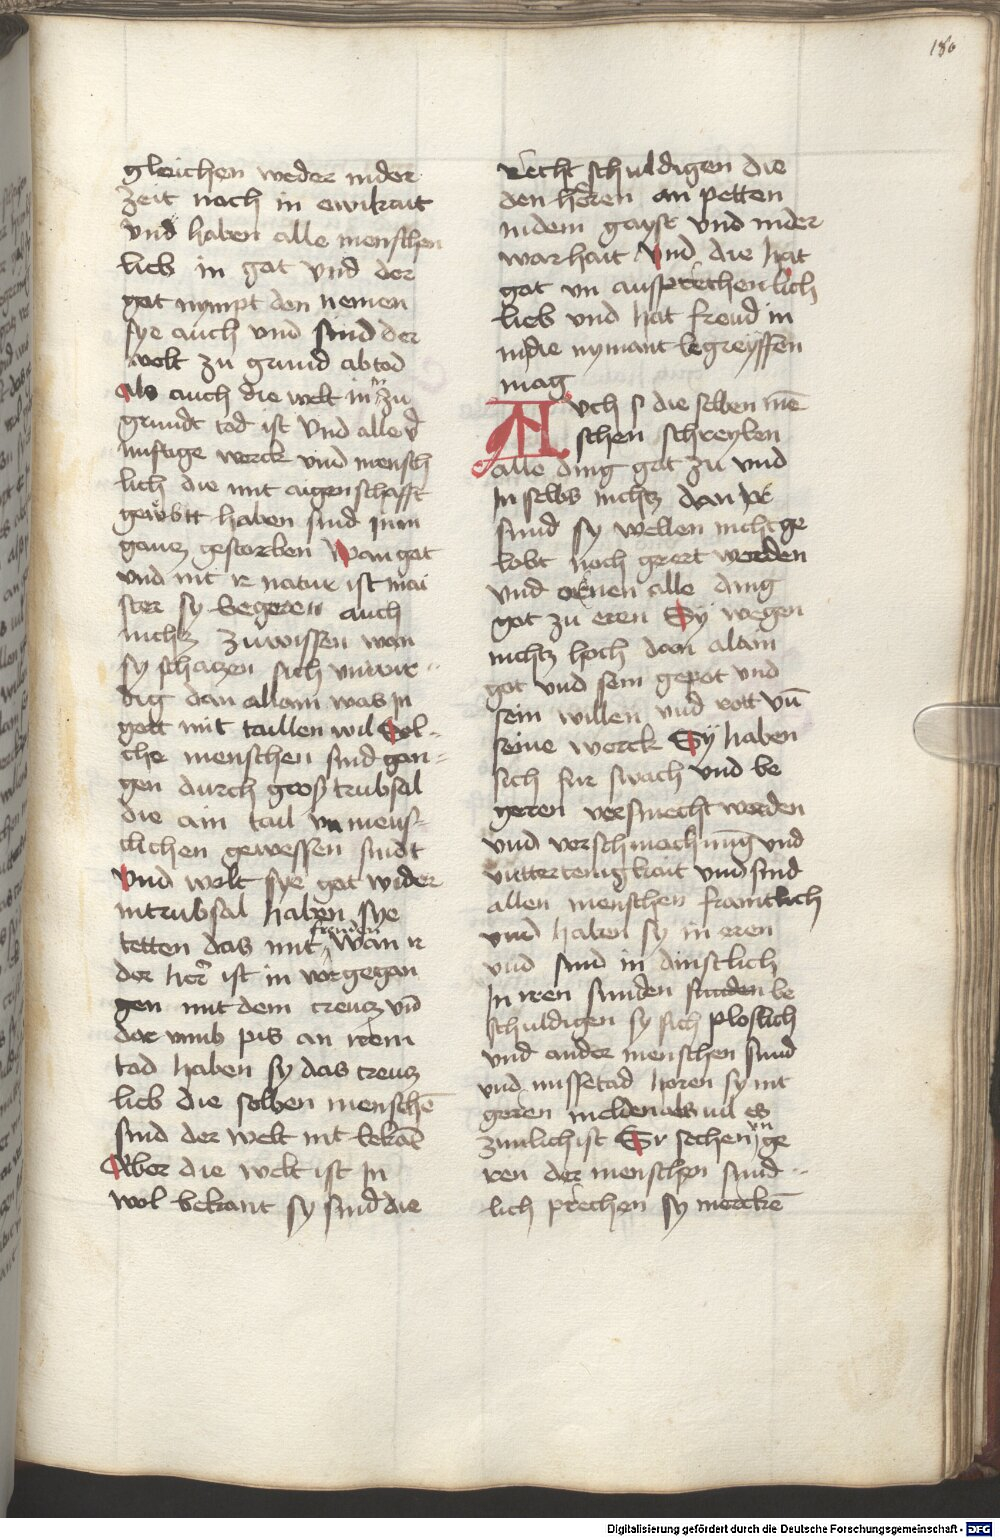 180
gleichen weder in der
zeit noch in ewikait
vnd haben alle menschen
lieb in got vnd der
got nympt den nemen
sye auch vnd sind der
welt zu grund abtod
Als auch die welt in in zu
grundt tod ist Vnd alle v̄
nuftige werck vnd mensch
lich die mit aigenschafft
gewbtt haben sind in im
gantz gestorben Wan got
vnd nit ir natur ist mai
ster sy begeren auch
nichtz zuwissen wan
sy schatzen sich vnwir
dig dan allain was in
gott mit taillen wil Sol
che menschen sind gan
gen durch gross trubsal
die ain tail vn mens
chlichen gewessen sindt
Vnd wolt sye got wider
in trubsal haben sye
tetten das mit freuden Wan ir
der her ist in vor gegan
gen mit dem creutz vnd
dar vmb pis an irem
tad haben sy das creutz
lieb die selben menschē
sind der welt nit bekāt
Aber die welt ist in
wol bekant sy sind die
recht schuldigen die
den heren an petten
in dem gayst vnd in der
warhait Vnd die hat
got vn aussprechenlich
lieb vnd hat freud in
in die nymant begreyffen
mag
AVch so die selben mē
schen schreyben
alle ding got zu vnd
in selbs nichtz dan ir
sund sy wellen nicht ge
lobt noch geert werden
vnd orenen alle ding
got zu eren Sy wegen
nichtz hoch dan alain
got vnd sein gepot vnd
sein willen vnd rott vn̄
seine werck Sy haben
sich fur swach vnd be
geren versmecht werden
vnd verschmachung vnd
vntterteinigkait vnd sind
allen menschen framtlich
vnd haben sy in eren
vnd sind in dinstlich
In iren sunden sunden be
schuldigen sy sich ploslich
vnd ander menschen sund
vnd missetad horen sy nit
geren melden als vil es
zimlich ist Er sechen vn̄ ge
ren der menschen sund
lich prechen sy merckē
Digitalisierung gefördert durch die Deutsche Forschungsgemeinschaft - DFG